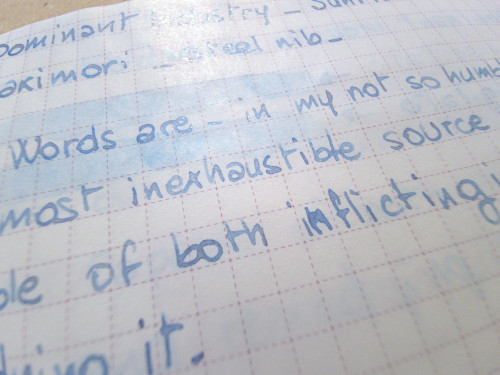 Dominant Industry -
akimori - steel nib -
Words are - in my not so humb
most inexhaustible source
ble of both inflicting i
it.